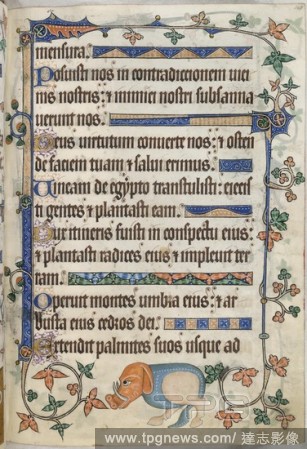 mensura.
Posuisti nos in contradictionem vici
nis nostris: & inimici nostri subsanna
verunt nos.
Deus virtutum converte nos: & osten
de faciem tuam & salvi erimus.
Vineam de egypto transtulisti: eiecis
ti gentes & plantasti eam.
Dux itineris fuisti in conspectu eius:
& plantasti radices eius & implevit ter
ram.
Operuit montes umbra eius: & ar
busta eius cedros dei.
Extendit palmites suos usque ad
TPG
www.tpgnews.com/ 達志影像